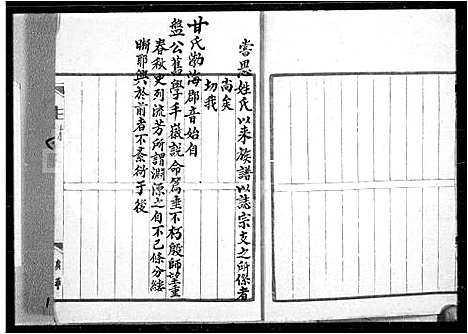 嘗思姓氏以来族譜以誌宗支之所係者
尚矣
切我
甘氏渤海郡音始自
盤公舊學手啟說命篇垂不朽殷師望重
春秋史列流芳所謂淵源之自不已條分縷
晰耶興於前者不紊衍于後